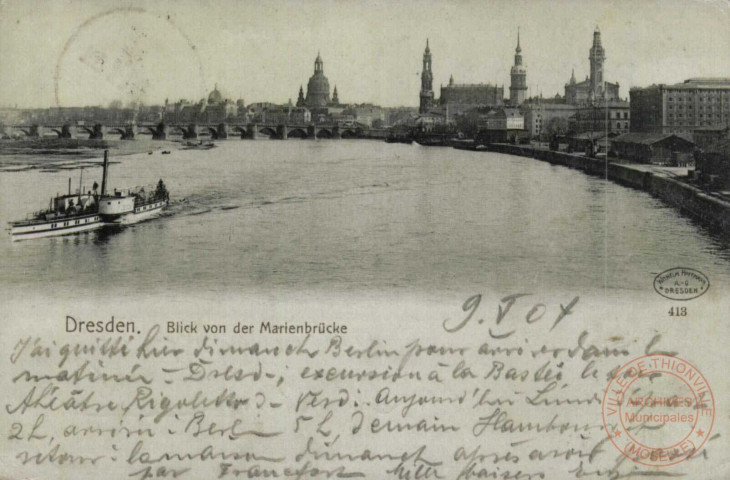 9. V 04
Dresden. Blick von der Marienbrücke
413
DRESDEN
J'ai quitté hier dimanch Berlin pour arriver dans la
matinée - Dresd-; excursion à la Bastei le soir
théâtre Rigoletto d- Verdi. Aujourd'hui Lundi
2h, arrivée - Berlin 5 h, demain Hambourg
retour: la maison dimanch après avoir passé
par Francfort
VILLE DE THIONVILLE
ARCHIVES
Municipales
MOSELLE